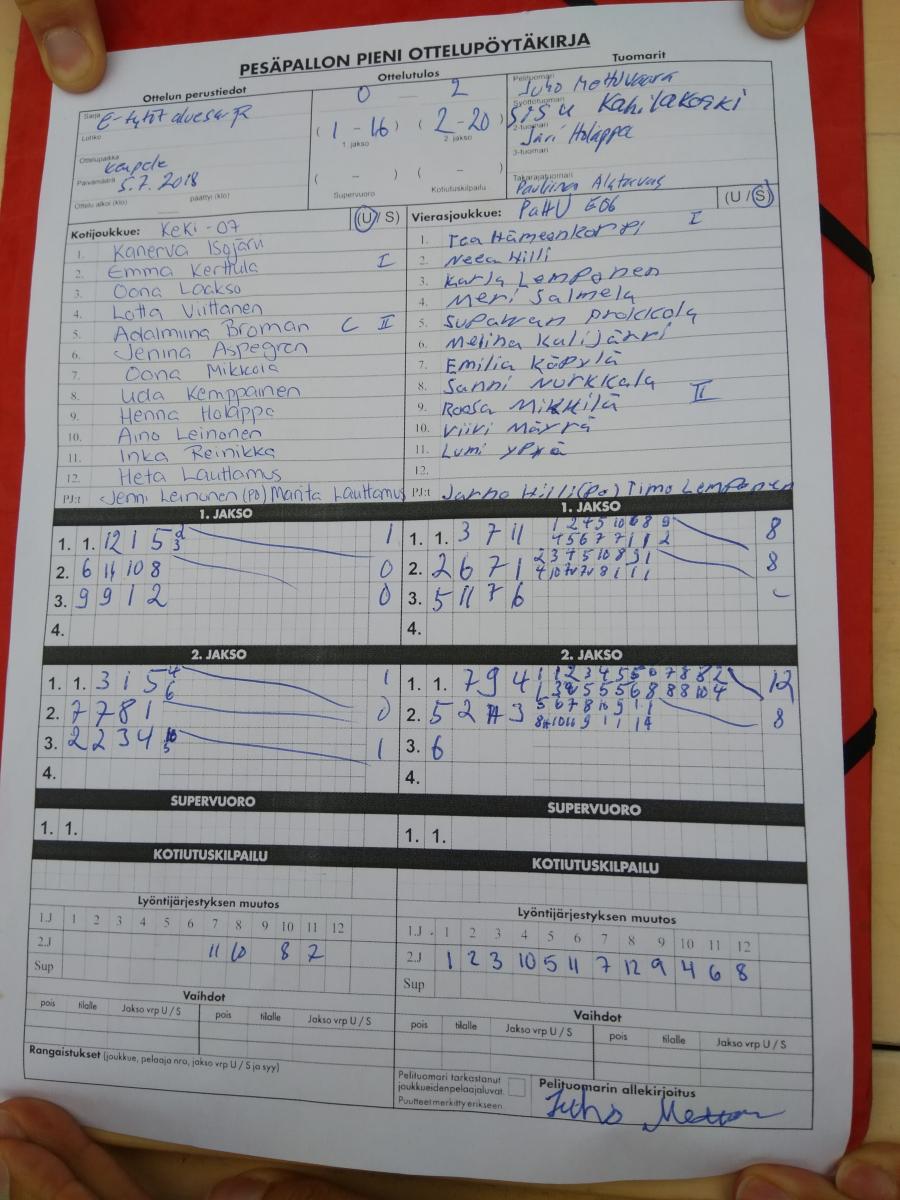 PESÄPALLON PIENI OTTELUPÖYTÄKIRJA
Ottelun perustiedot
Ottelutulos
Tuomarit
Sarja
E-tytöt
Lohko
Ottelupaikka
Kempele
Päivämäärä
5.7.2018
Ottelu alkoi (klo) päättyi (klo)
0 2
( 1 - 16 ) ( 2 - 20 )
1. jakso 2. jakso
( - ) ( - )
Supervuoro Kotiutuskilpailu
Pelituomari
Juho
Syöttötuomari
Sisu Kahilakoski
2-tuomari
Jari Holappa
3-tuomari
Takarajatuomari
Pauliina Alatarvas
Kotijoukkue: KeKi -07 (U / S)
1. Kanerva Isojärvi
2. Emma Kerttula I
3. Oona Laakso
4. Lotta Viittanen
5. Adalmiina Broman C II
6. Jenina Aspegren
7. Oona Mikkola
8. Uda Kemppainen
9. Henna Holappa
10. Aino Leinonen
11. Inka Reinikka
12. Heta Lauttamus
PJ:t Jenni Leinonen (PO) Marita Lauttamus
Vierasjoukkue: PattU E06 (U / S)
1. Tea Hämeenkorpi I
2. Neea Hilli
3. Karla Lemponen
4. Meri Salmela
5. Supawan Prokkola
6. Melina Kalijärvi
7. Emilia Käpylä
8. Sanni Nurkkala
9. Roosa Mikkilä II
10. Viivi Määttä
11. Lumi Yppä
12.
PJ:t Jarno Hilli (PO) Timo Lemponen
1. JAKSO
1. 1. 12 1 5 2 3 1
2. 6 11 10 8 0
3. 9 9 1 2 0
4.
1. JAKSO
1. 1. 3 7 11 1 2 4 5 10 6 8 9 8
4 5 6 7 7 1 1 2
2. 2 6 7 1 2 3 4 5 10 8 9 1 8
3. 5 11 7 6 -
4.
2. JAKSO
1. 1. 3 1 5 4 6 1
2. 7 7 8 1 0
3. 2 2 3 4 1
4.
2. JAKSO
1. 1. 7 9 4 12
2. 5 2 3 8
3. 6
4.
SUPERVUORO
1. 1.
SUPERVUORO
1. 1.
KOTIUTUSKILPAILU
KOTIUTUSKILPAILU
Lyöntijärjestyksen muutos
1.J 1 2 3 4 5 6 7 8 9 10 11 12
2.J 11 10 8 7
Sup
Lyöntijärjestyksen muutos
1.J 1 2 3 4 5 6 7 8 9 10 11 12
2.J 1 2 3 10 5 11 7 12 9 4 6 8
Sup
Vaihdot
pois tilalle Jakso vrp U / S pois tilalle Jakso vrp U / S
Vaihdot
pois tilalle Jakso vrp U / S pois tilalle Jakso vrp U / S
Rangaistukset (joukkue, pelaaja nro, jakso vrp U / S ja syy)
Pelituomari tarkastanut
joukkueidenpelaajaluvat.
Puutteet merkitty erikseen.
Pelituomarin allekirjoitus
Juho